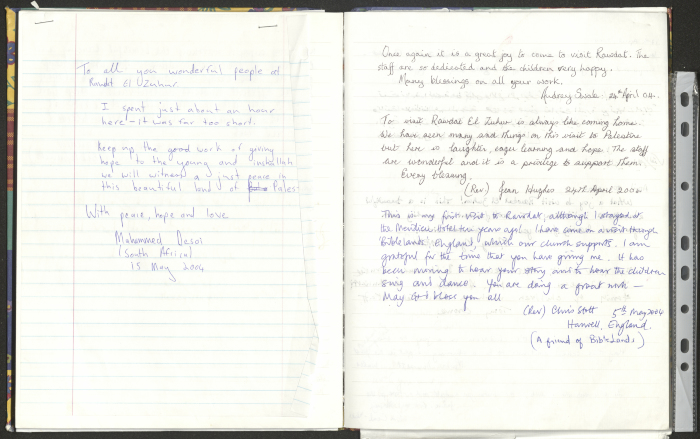 To all you wonderful people at
Raudt El Uzuhur
I spent just about an hour
here – it was far too short.
Keep up the good work of giving
hope to the young and inshallah
we will witness a just peace in
this beautiful land of Pales-
With peace, hope and love
Mohammed Desai
(South Africa)
15 May 2004
Once again it is a great joy to come to visit Rawdat. The
staff are so dedicated and the children very happy.
Many blessings on all your work.
Audrey 24th April 04.
To visit Rawdat El Zuhur is always like coming home.
We have seen many sad things on this visit to Palestine
but here is laughter, eager learning and hope. The staff
are wonderful and it is a privilege to support them.
Every blessing.
(Rev) Jean Hughes 24th April 2004
This is my first visit to Rawdat, although I stayed at
the Meridian Hotel ten years ago! I have come on a visit through
'Biblelands' England, which our church supports. I am
grateful for the time that you have giving me. It has
been moving to hear your story and to hear the children
sing and dance. You are doing a great work –
May God bless you all
(Rev) Chris Stott 5th May 2004
Hanwell, England.
(A friend of BibleLands)